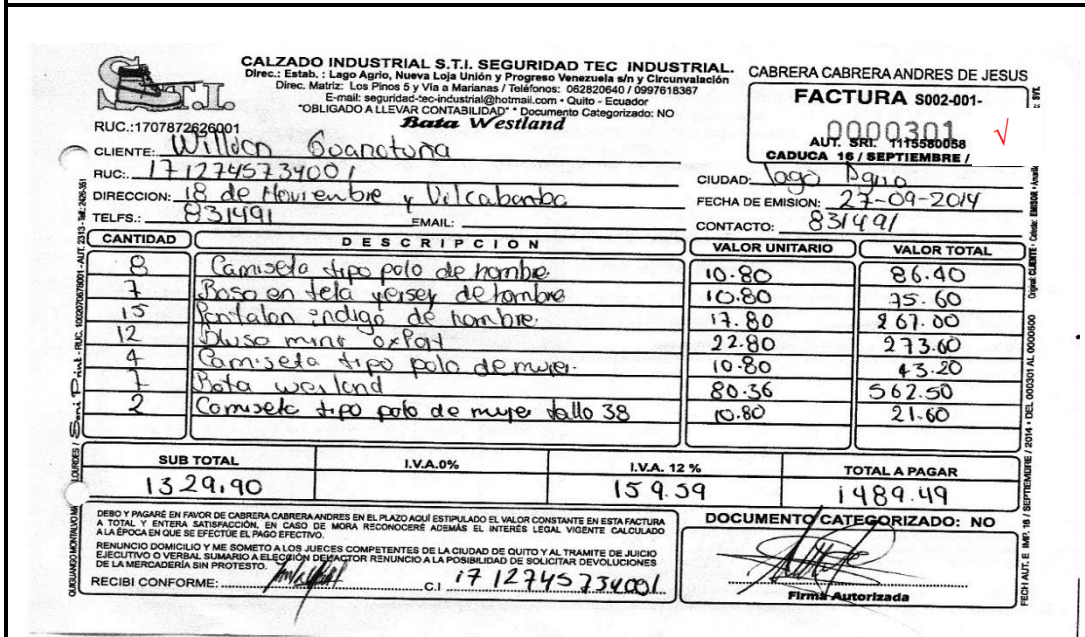 S.T.I.
CALZADO INDUSTRIAL S.T.I. SEGURIDAD TEC INDUSTRIAL.
Direc.: Estab. : Lago Agrio, Nueva Loja Unión y Progreso Venezuela s/n y Circunvalación
Direc. Matriz: Los Pinos 5 y Vía a Marianas / Teléfonos: 062820640 / 0997618367
E-mail: seguridad-tec-industrial@hotmail.com • Quito - Ecuador
"OBLIGADO A LLEVAR CONTABILIDAD" * Documento Categorizado: NO
Bata Westland
CABRERA CABRERA ANDRES DE JESUS
FACTURA S002-001-
0000301
AUT. SRI. 1115580058
CADUCA 16 / SEPTIEMBRE /
RUC.:1707872626001
CLIENTE: Willian Guanotuña
RUC: 1712745734001
CIUDAD: Lago Agrio
DIRECCION: 18 de Noviembre y Vilcabamba
FECHA DE EMISION: 27-09-2014
TELFS.: 831491 EMAIL: CONTACTO: 831491
CANTIDAD DESCRIPCION VALOR UNITARIO VALOR TOTAL
8 Camiseta tipo polo de hombre 10.80 86.40
7 en tela yersey de hombre 10.80 75.60
15 Pantalon indigo de hombre 17.80 267.00
12 Blusa oxfort 22.80 273.60
4 Camiseta tipo polo de mujer. 10.80 43.20
7 Bota wesland 80.36 562.50
2 Camiseta tipo polo de mujer tallo 38 10.80 21.60
SUB TOTAL I.V.A.0% I.V.A. 12 % TOTAL A PAGAR
1329,90 159.59 1489.49
DEBO Y PAGARÉ EN FAVOR DE CABRERA CABRERA ANDRES EN EL PLAZO AQUÍ ESTIPULADO EL VALOR CONSTANTE EN ESTA FACTURA
A TOTAL Y ENTERA SATISFACCIÓN, EN CASO DE MORA RECONOCERÉ ADEMÁS EL INTERÉS LEGAL VIGENTE CALCULADO
A LA ÉPOCA EN QUE SE EFECTÚE EL PAGO EFECTIVO.
RENUNCIO DOMICILIO Y ME SOMETO A LOS JUECES COMPETENTES DE LA CIUDAD DE QUITO Y AL TRAMITE DE JUICIO
EJECUTIVO O VERBAL SUMARIO A ELECCIÓN DEL ACTOR RENUNCIO A LA POSIBILIDAD DE SOLICITAR DEVOLUCIONES
DE LA MERCADERÍA SIN PROTESTO.
RECIBI CONFORME: C.I 1712745734001
DOCUMENTO CATEGORIZADO: NO
Firma Autorizada